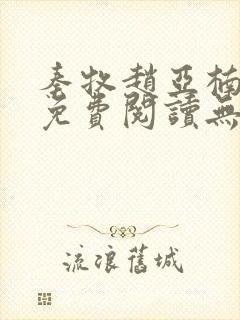 秦牧趙亞楠
免費閱讀無
流浪舊城